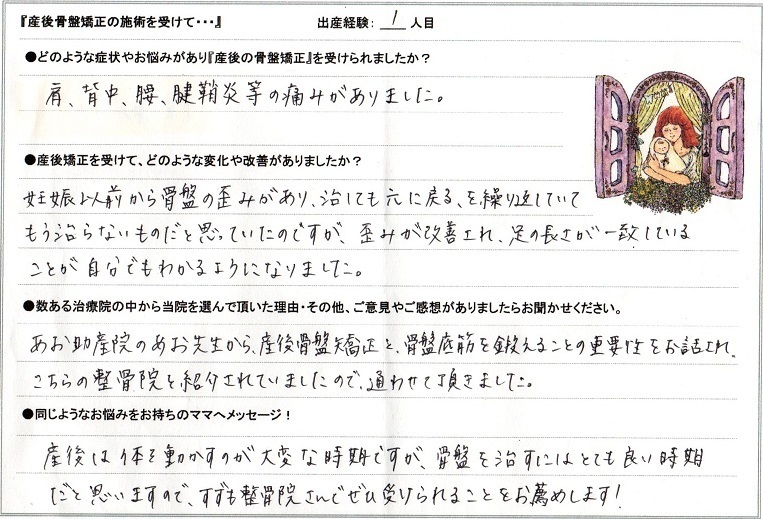 『産後骨盤矯正の施術を受けて・・・』 出産経験: 1 人目
●どのような症状やお悩みがあり『産後の骨盤矯正』を受けられましたか？
肩、背中、腰、腱鞘炎等の痛みがありました。
●産後矯正を受けて、どのような変化や改善がありましたか？
妊娠以前から骨盤の歪みがあり、治しても元に戻る、を繰り返していて
もう治らないものだと思っていたのですが、歪みが改善され、足の長さが一致している
ことが自分でもわかるようになりました。
●数ある治療院の中から当院を選んで頂いた理由・その他、ご意見やご感想がありましたらお聞かせください。
あお助産院のあお先生から、産後骨盤矯正と、骨盤底筋を鍛えることの重要性をお話され、
こちらの整骨院を紹介されていましたので、通わせて頂きました。
●同じようなお悩みをお持ちのママへメッセージ！
産後は体を動かすのが大変な時期ですが、骨盤を治すにはとても良い時期
だと思いますので、すずも整骨院さんでぜひ受けられることをお薦めします！